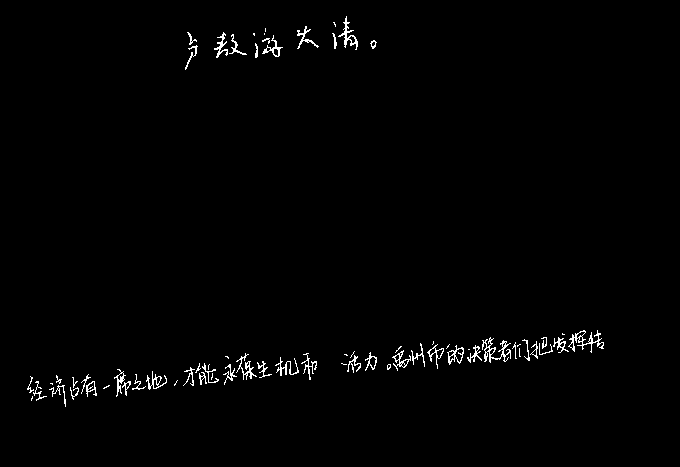 经济占有一席之地,才能永葆生机和 活力。禹州市的决策者们把发挥传